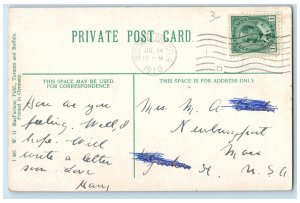 3-
PRIVATE POST CARD.
JUL 14
12 - M
1910
D
THIS SPACE MAY BE USED
FOR CORRESPONDENCE
THIS SPACE IS FOR ADDRESS ONLY
How are you
feeling. Well I
hope. Will
write a letter
soon. Love
Mrs. M. A.
Newburyport
Mass
U.S.A
Printed in Germany.